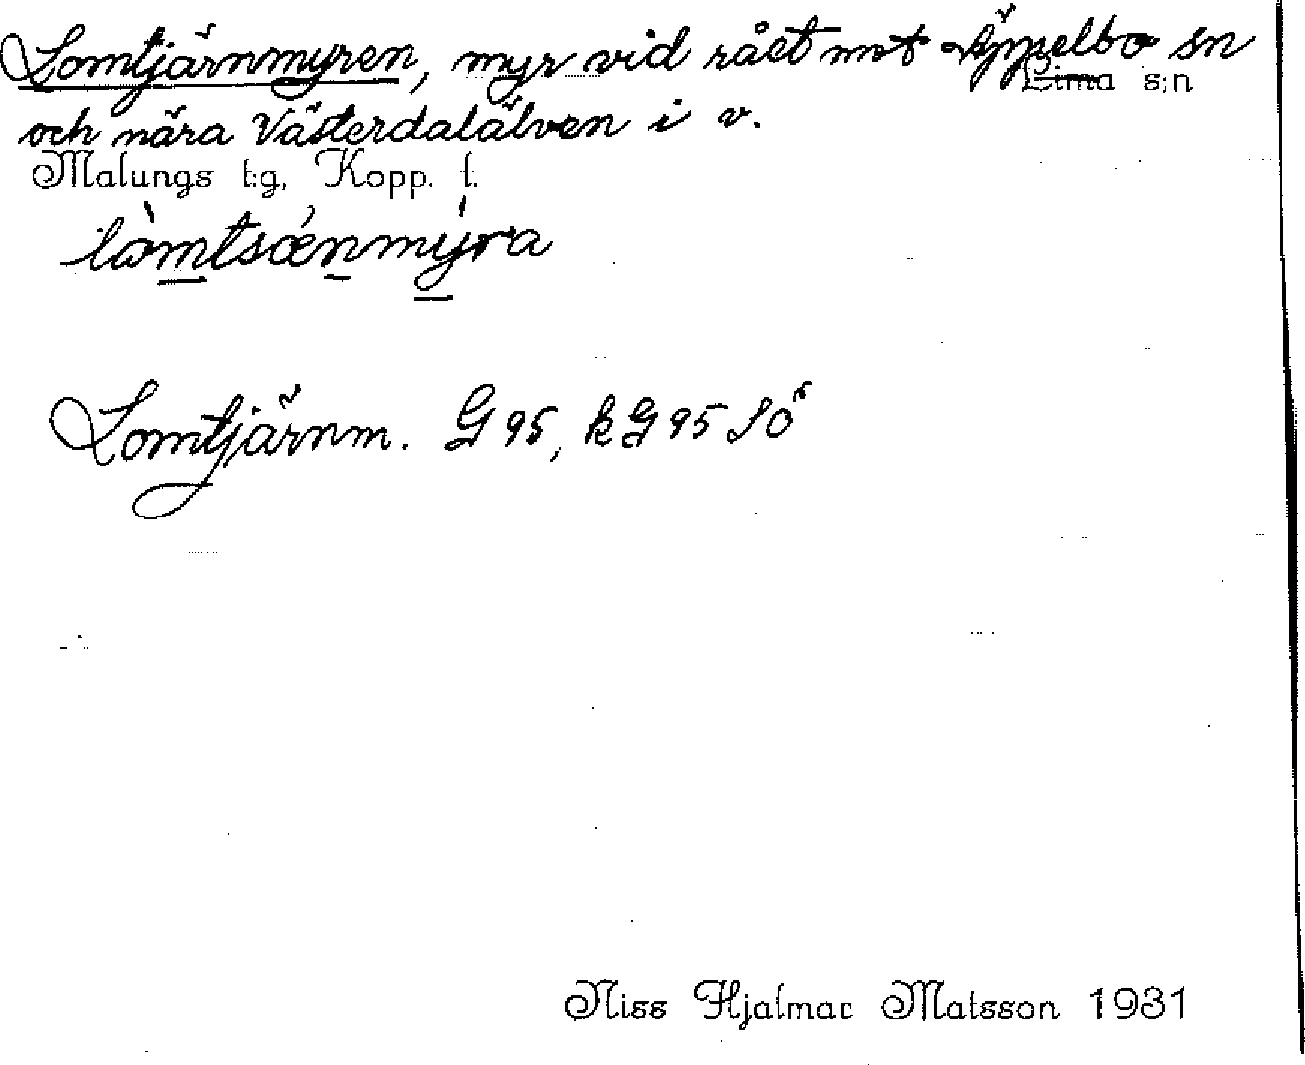 Lomtjärnmyren, myr vid rået mot Äppelbo sn
Lima s:n
och nära Västerdalälven i v.
Malungs t:g, Kopp. l.
Lomtjärnm. G 95, k G 95 SÖ
Niss Hjalmar Matsson 1931